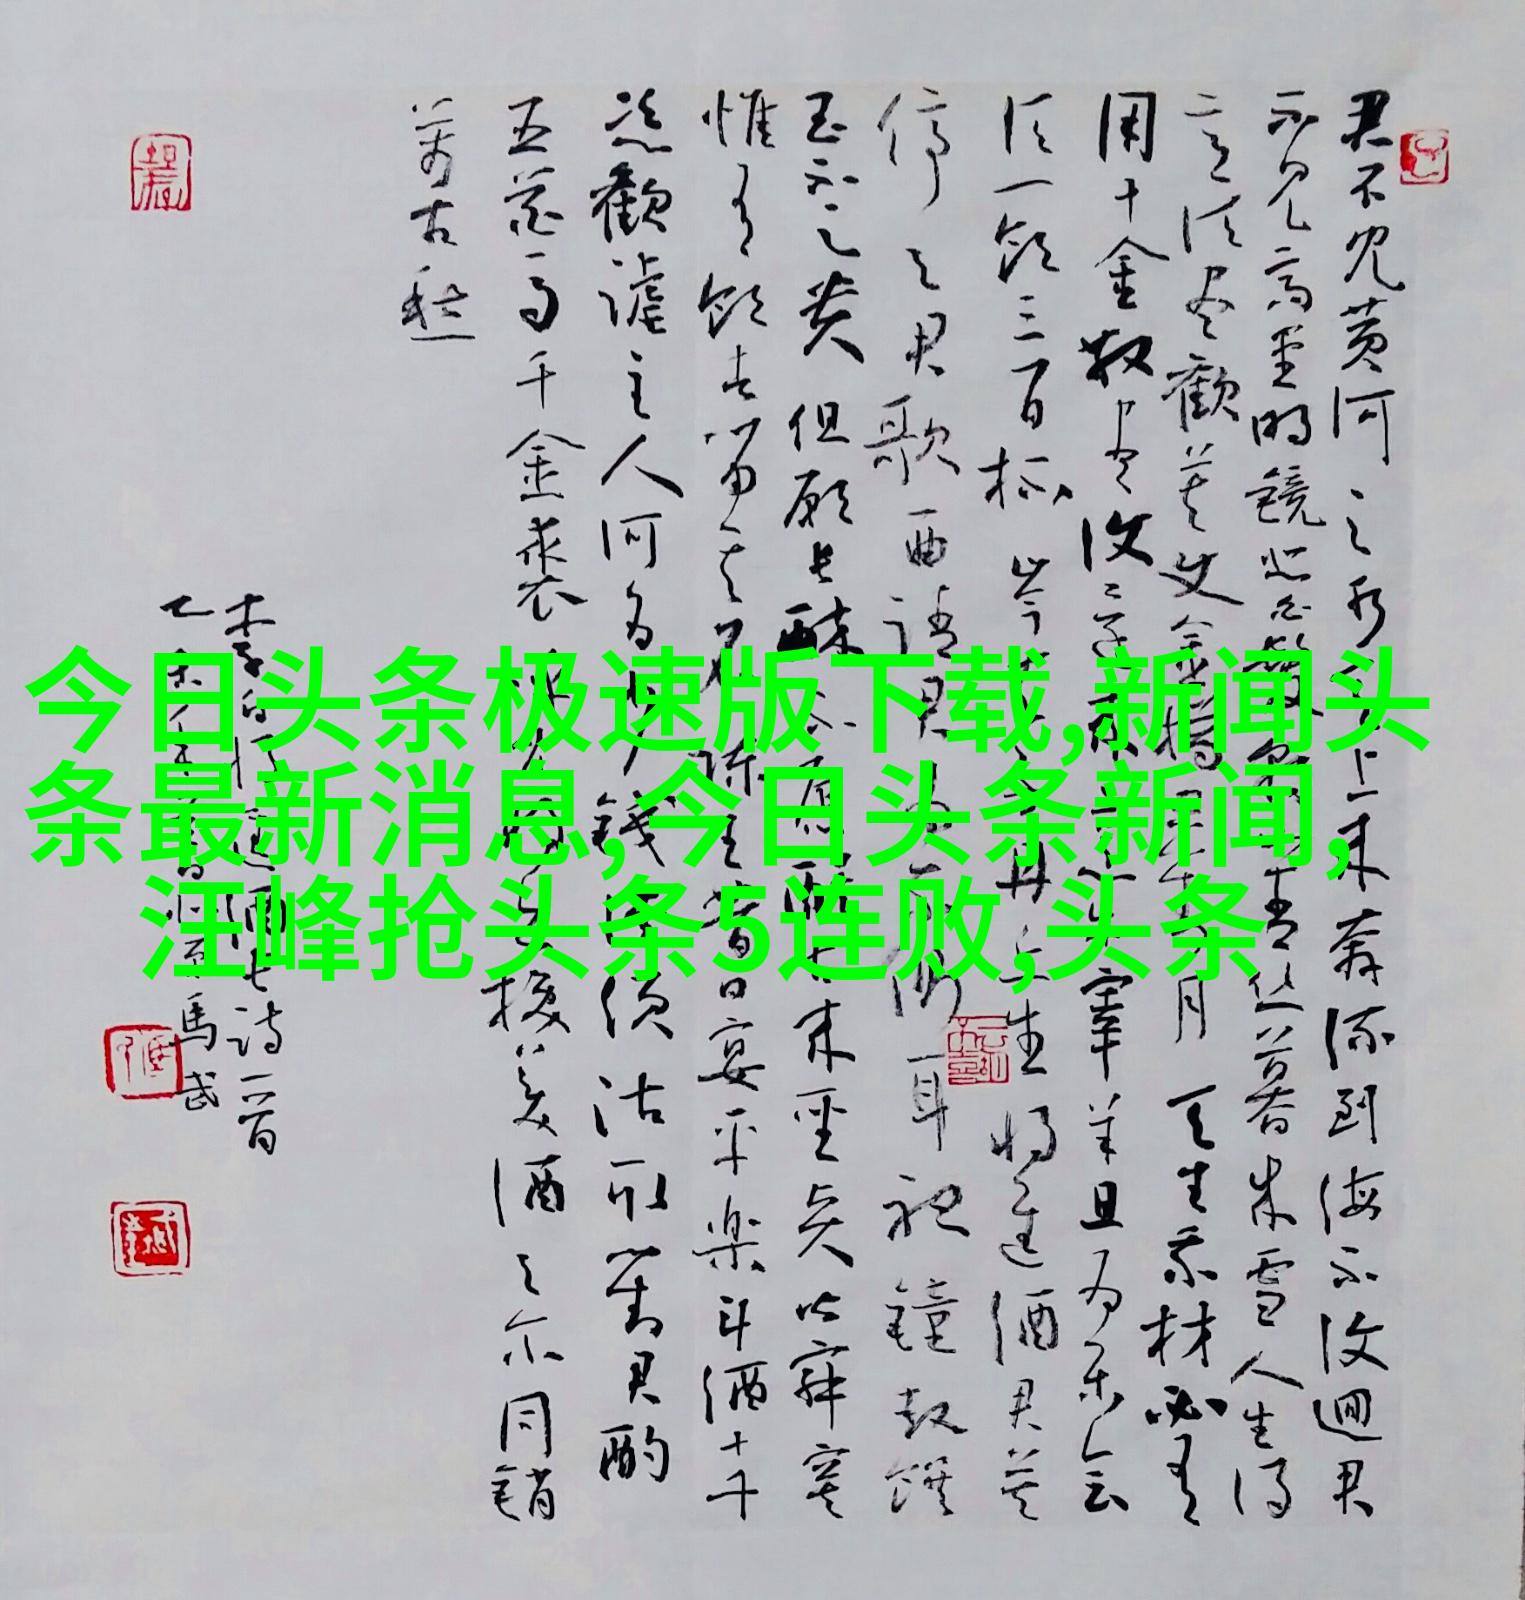 君不見黄河之水天上来奔流到海不復迴君
不見高堂明镜悲白髮朝如青丝暮成雪人生得
意须尽歡莫使金樽空對月天生我材必有
用千金散尽復还来烹羊宰羊且为乐会
须一饮三百杯岑夫子丹丘生将進酒君莫
停与君歌一曲请君为我侧耳聽鐘鼓饌
玉不足贵但願长醉不愿醒古来聖贤皆寂寞
惟有饮者留其名陈王昔日宴平樂斗酒十千
恣歡謔主人何为言少钱径须沽取對君酌
五花马千金裘呼儿将出换美酒与尔同销
萬古愁
李白将進酒七诗一首
乙未年 馬武
今日头条极速版下载,新闻头
条最新消息,今日头条新闻,
汪峰抢头条5连败,头条